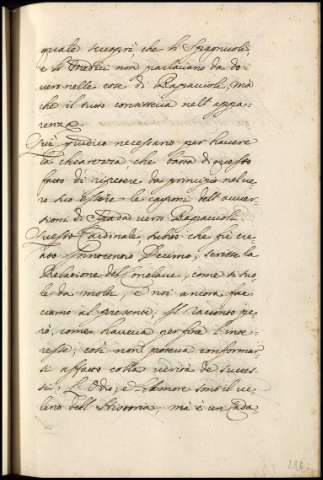 quale scoprì, che li Spagnuoli,
e li Tedei non parlavano da do
vero nelle cose di Rapaccioli, mà
che il tutto consisteva nell'appa-
renza.
Per giudico necessario per havere
la chiarezza che basta di questo
fatto di ripetere dal principio nel ve-
ro suo essere le cagioni dell'auver-
sioni di Spada vero Rapaccioli.
Questo Cardinale, subito che fù cre-
ato Innocenzo Decimo, scrisse la
Relazione del Conclave, come si suo
le da molti, e noi ancora fac-
ciamo al presente, Il racconto pe
rò, come haveva per fine l'inte-
resse, così non poteva conformar-
si affatto colla verità de succes-
si: L'Odio, e l'Amore sono il ve-
leno dell'Historia, mà è un Cada